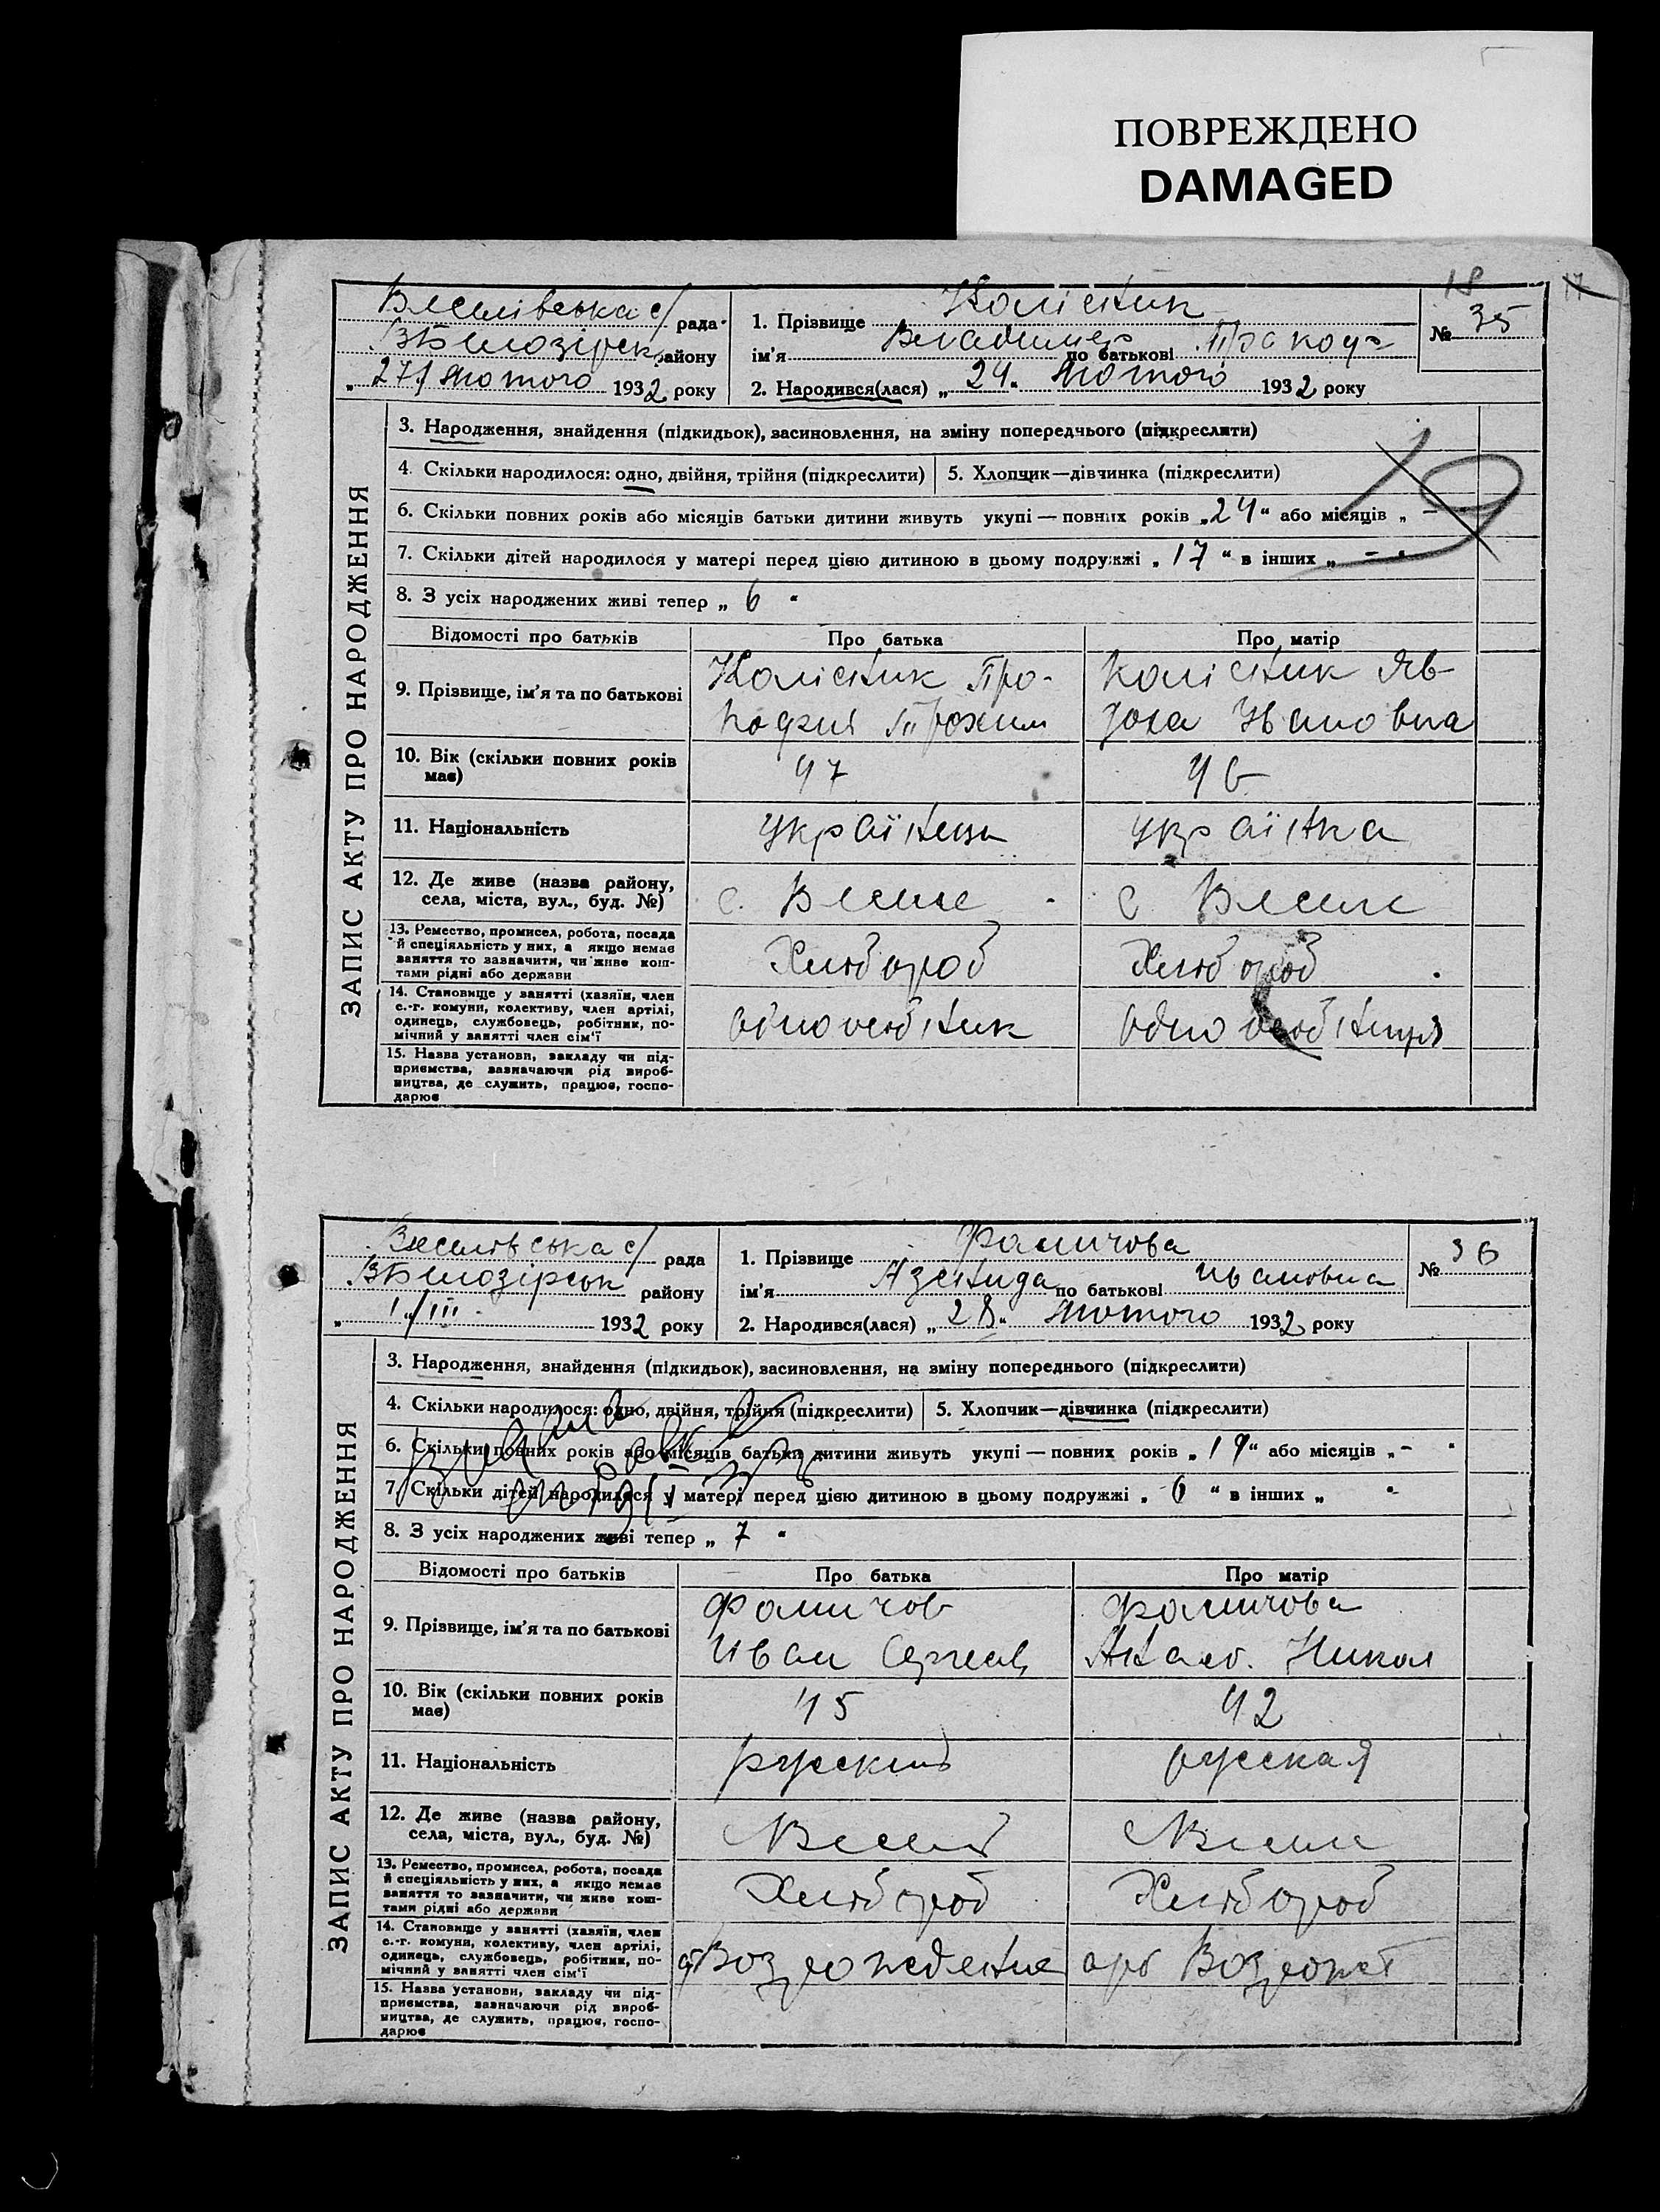 ПОВРЕЖДЕНО
DAMAGED
18
17
рада
района
1. Прізвище Колісник
№ 35
району
ім'я Владимер по батькові Прокоф
„27/ Лютого 1932 року
2. Народився(лася) „24„ Лютого 1932 року
ЗАПИС АКТУ ПРО НАРОДЖЕННЯ
3. Народження, знайдення (підкидьок), засиновлення, на зміну попереднього (підкреслити)
4. Скільки народилося: одно, двійня, трійня (підкреслити) 5. Хлопчик—дівчинка (підкреслити)
6. Скільки повних років або місяців батьки дитини живуть укупі — повних років „24“ або місяців „ –
7. Скільки дітей народилося у матері перед цією дитиною в цьому подружжі „17“ в інших „ – “
8. З усіх народжених живі тепер „ 6 “
Відомості про батьків Про батька Про матір
9. Прізвище, ім'я та по батькові
Колісник Про-
кофий Трохим
Колісник Яв-
дока Ивановна
10. Вік (скільки повних років має) 47 46
11. Національність українець українка
12. Де живе (назва району,
села, міста, вул., буд. №)
13. Ремество, промисел, робота, посада
й спеціяльність у них, а якщо немає
заняття то зазначити, чи живе кош-
тами рідні або держави
Хлібороб Хлібороб
14. Становище у занятті (хазяїн, член
с.-г. комуни, колективу, член артілі,
одинець, службовець, робітник, по-
мічний у занятті член сім'ї
одноосібник одноосібниця
15. Назва установи, закладу чи під-
приємства, зазначаючи рід вироб-
ництва, де служить, працює, госпо-
дарює
рада
1. Прізвище Фомичова
№ 36
району
ім'я по батькові Ивановна
„ 1„/III 1932 року
2. Народився(лася) „28„ Лютого 1932 року
ЗАПИС АКТУ ПРО НАРОДЖЕННЯ
3. Народження, знайдення (підкидьок), засиновлення, на зміну попереднього (підкреслити)
4. Скільки народилося: одно, двійня, трійня (підкреслити) 5. Хлопчик—дівчинка (підкреслити)
6. Скільки повних років або місяців батьки дитини живуть укупі — повних років „19“ або місяців „ – “
7. Скільки дітей народилося у матері перед цією дитиною в цьому подружжі „ 6 “ в інших „ “
8. З усіх народжених живі тепер „ 7 “
Відомості про батьків Про батька Про матір
9. Прізвище, ім'я та по батькові
Фомичов
Иван Сергеев
Фомичова
Никол
10. Вік (скільки повних років має) 45 42
11. Національність русский русская
12. Де живе (назва району,
села, міста, вул., буд. №)
13. Ремество, промисел, робота, посада
й спеціяльність у них, а якщо немає
заняття то зазначити, чи живе кош-
тами рідні або держави
Хлібороб Хлібороб
14. Становище у занятті (хазяїн, член
с.-г. комуни, колективу, член артілі,
одинець, службовець, робітник, по-
мічний у занятті член сім'ї
Возрождение
15. Назва установи, закладу чи під-
приємства, зазначаючи рід вироб-
ництва, де служить, працює, госпо-
дарює